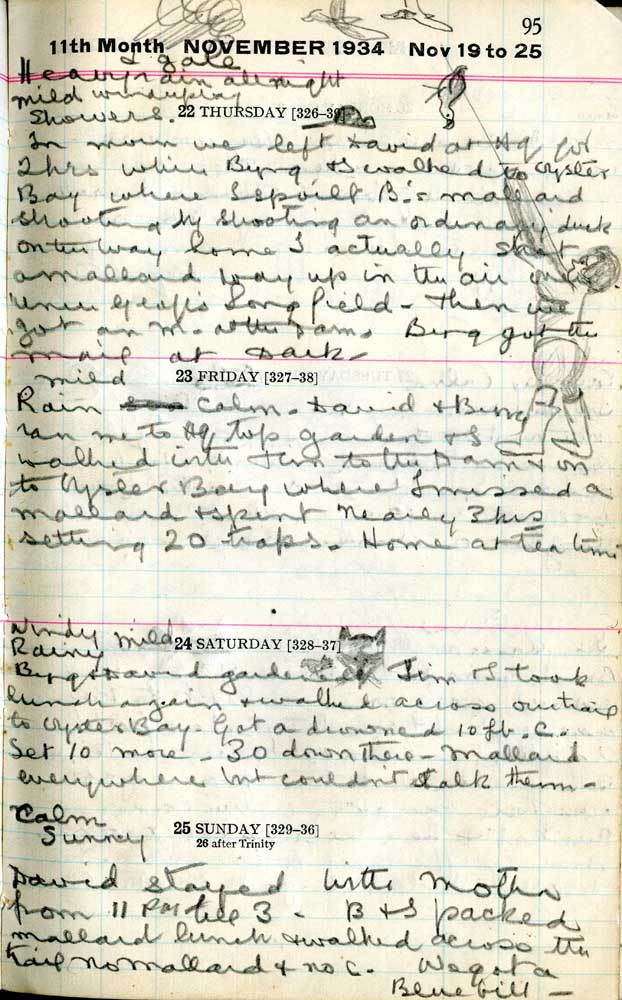 95
11th Month NOVEMBER 1934 Nov 19 to 25
& gale
Heavy rain all night
mild
Showers.
22 THURSDAY [326–39]
In morn we left David at Hq for
2 hrs while Byng & I walked to Oyster
Bay where I spoilt B's mallard
shooting by shooting an ordinary duck
on the way home I actually shot
a mallard way up in the air over
Long field - then we
got an m. at the Dam. Byng got the
mail at Dark -
mild
23 FRIDAY [327–38]
Rain calm. David & Byng
ran me to Hq top garden & I
walked with Jim to the Dam & on
to Oyster Bay where I missed a
mallard & spent nearly 3 hrs
setting 20 traps. Home at tea time
Windy mild
Rainy
24 SATURDAY [328–37]
Byng & David gardened Jim & I took
lunch again & walked across our trail
to Oyster Bay. Got a drowned 10 lb. C.
Set 10 more - 30 down there - Mallard
everywhere but couldn't stalk them -
Calm
Sunny
25 SUNDAY [329–36]
26 after Trinity
David stayed with Mother
from 11 till 3 - B & I packed
mallard lunch & walked across the
trail no mallard & no c. We got a
Bluebill -